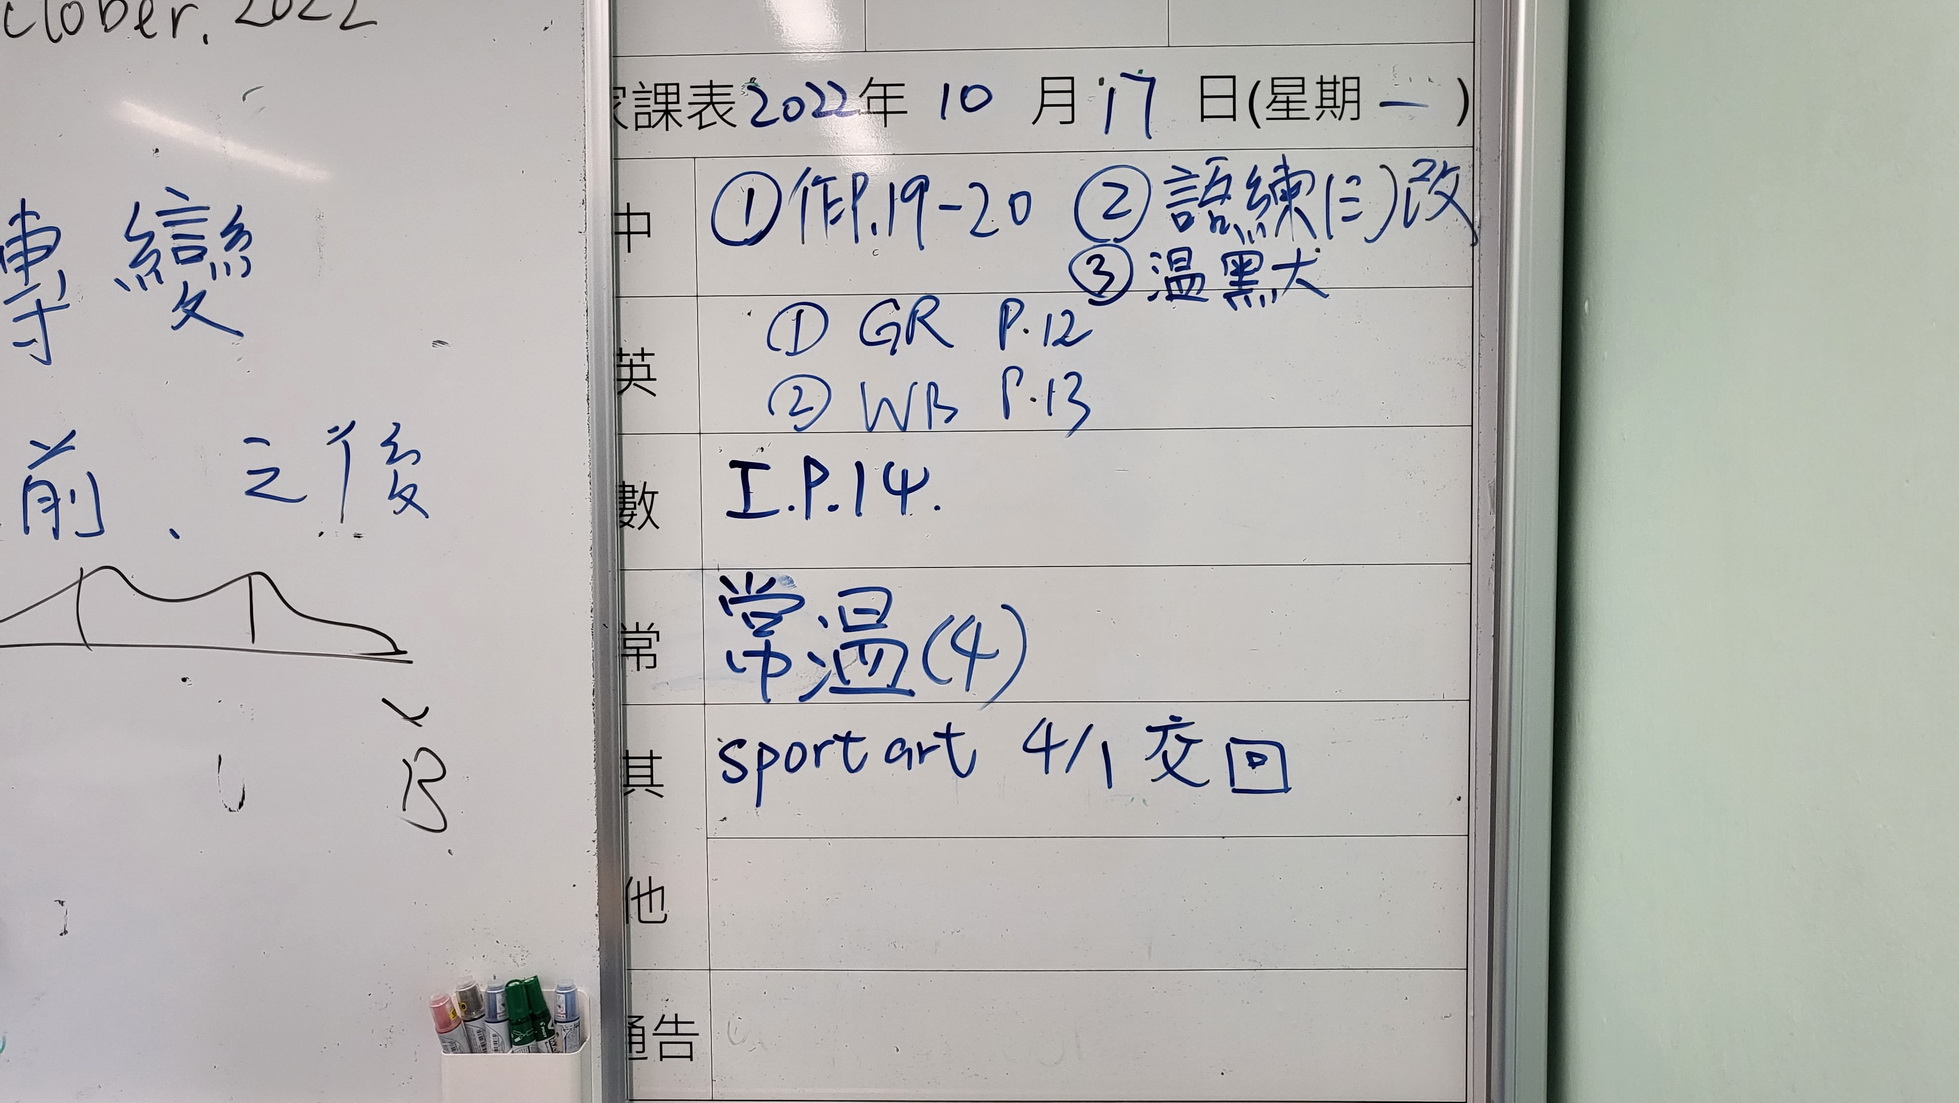 ctober. 2022
轉變
前、之後
B
家課表 2022年 10 月 17 日(星期 一 )
中 ①作P.19-20 ②語練(三)改
③溫黑犬
英 ① GR P.12
② WB P.13
數 I.P.14.
常 常溫(4)
其他 sport art 4/1 交回
通告